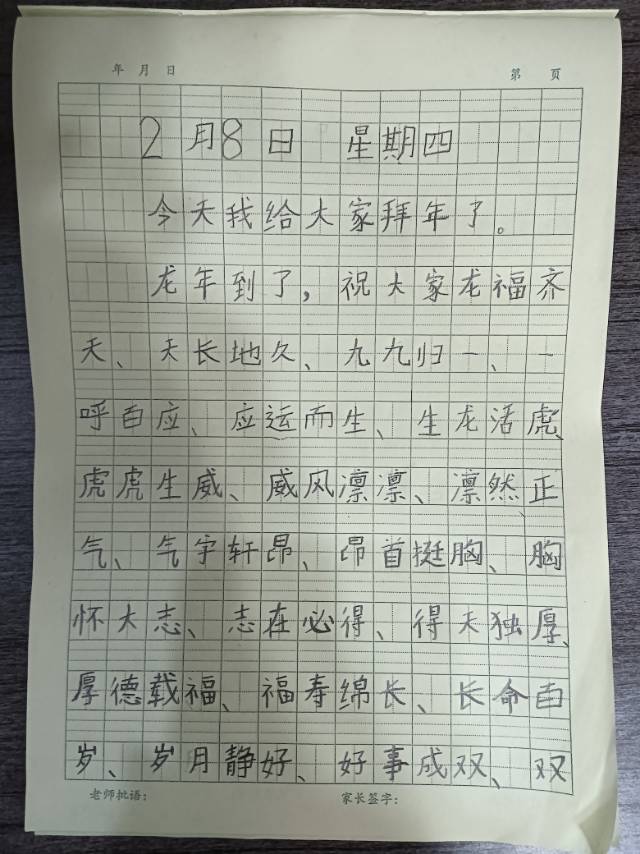 年 月 日 第 页
2月8日 星期四
今天我给大家拜年了。
龙年到了，祝大家龙福齐
天、天长地久、九九归一、一
呼百应、应运而生、生龙活虎、
虎虎生威、威风凛凛、凛然正
气、气宇轩昂、昂首挺胸、胸
怀大志、志在必得、得天独厚、
厚德载福、福寿绵长、长命百
岁、岁月静好、好事成双、双
老师批语： 家长签字：